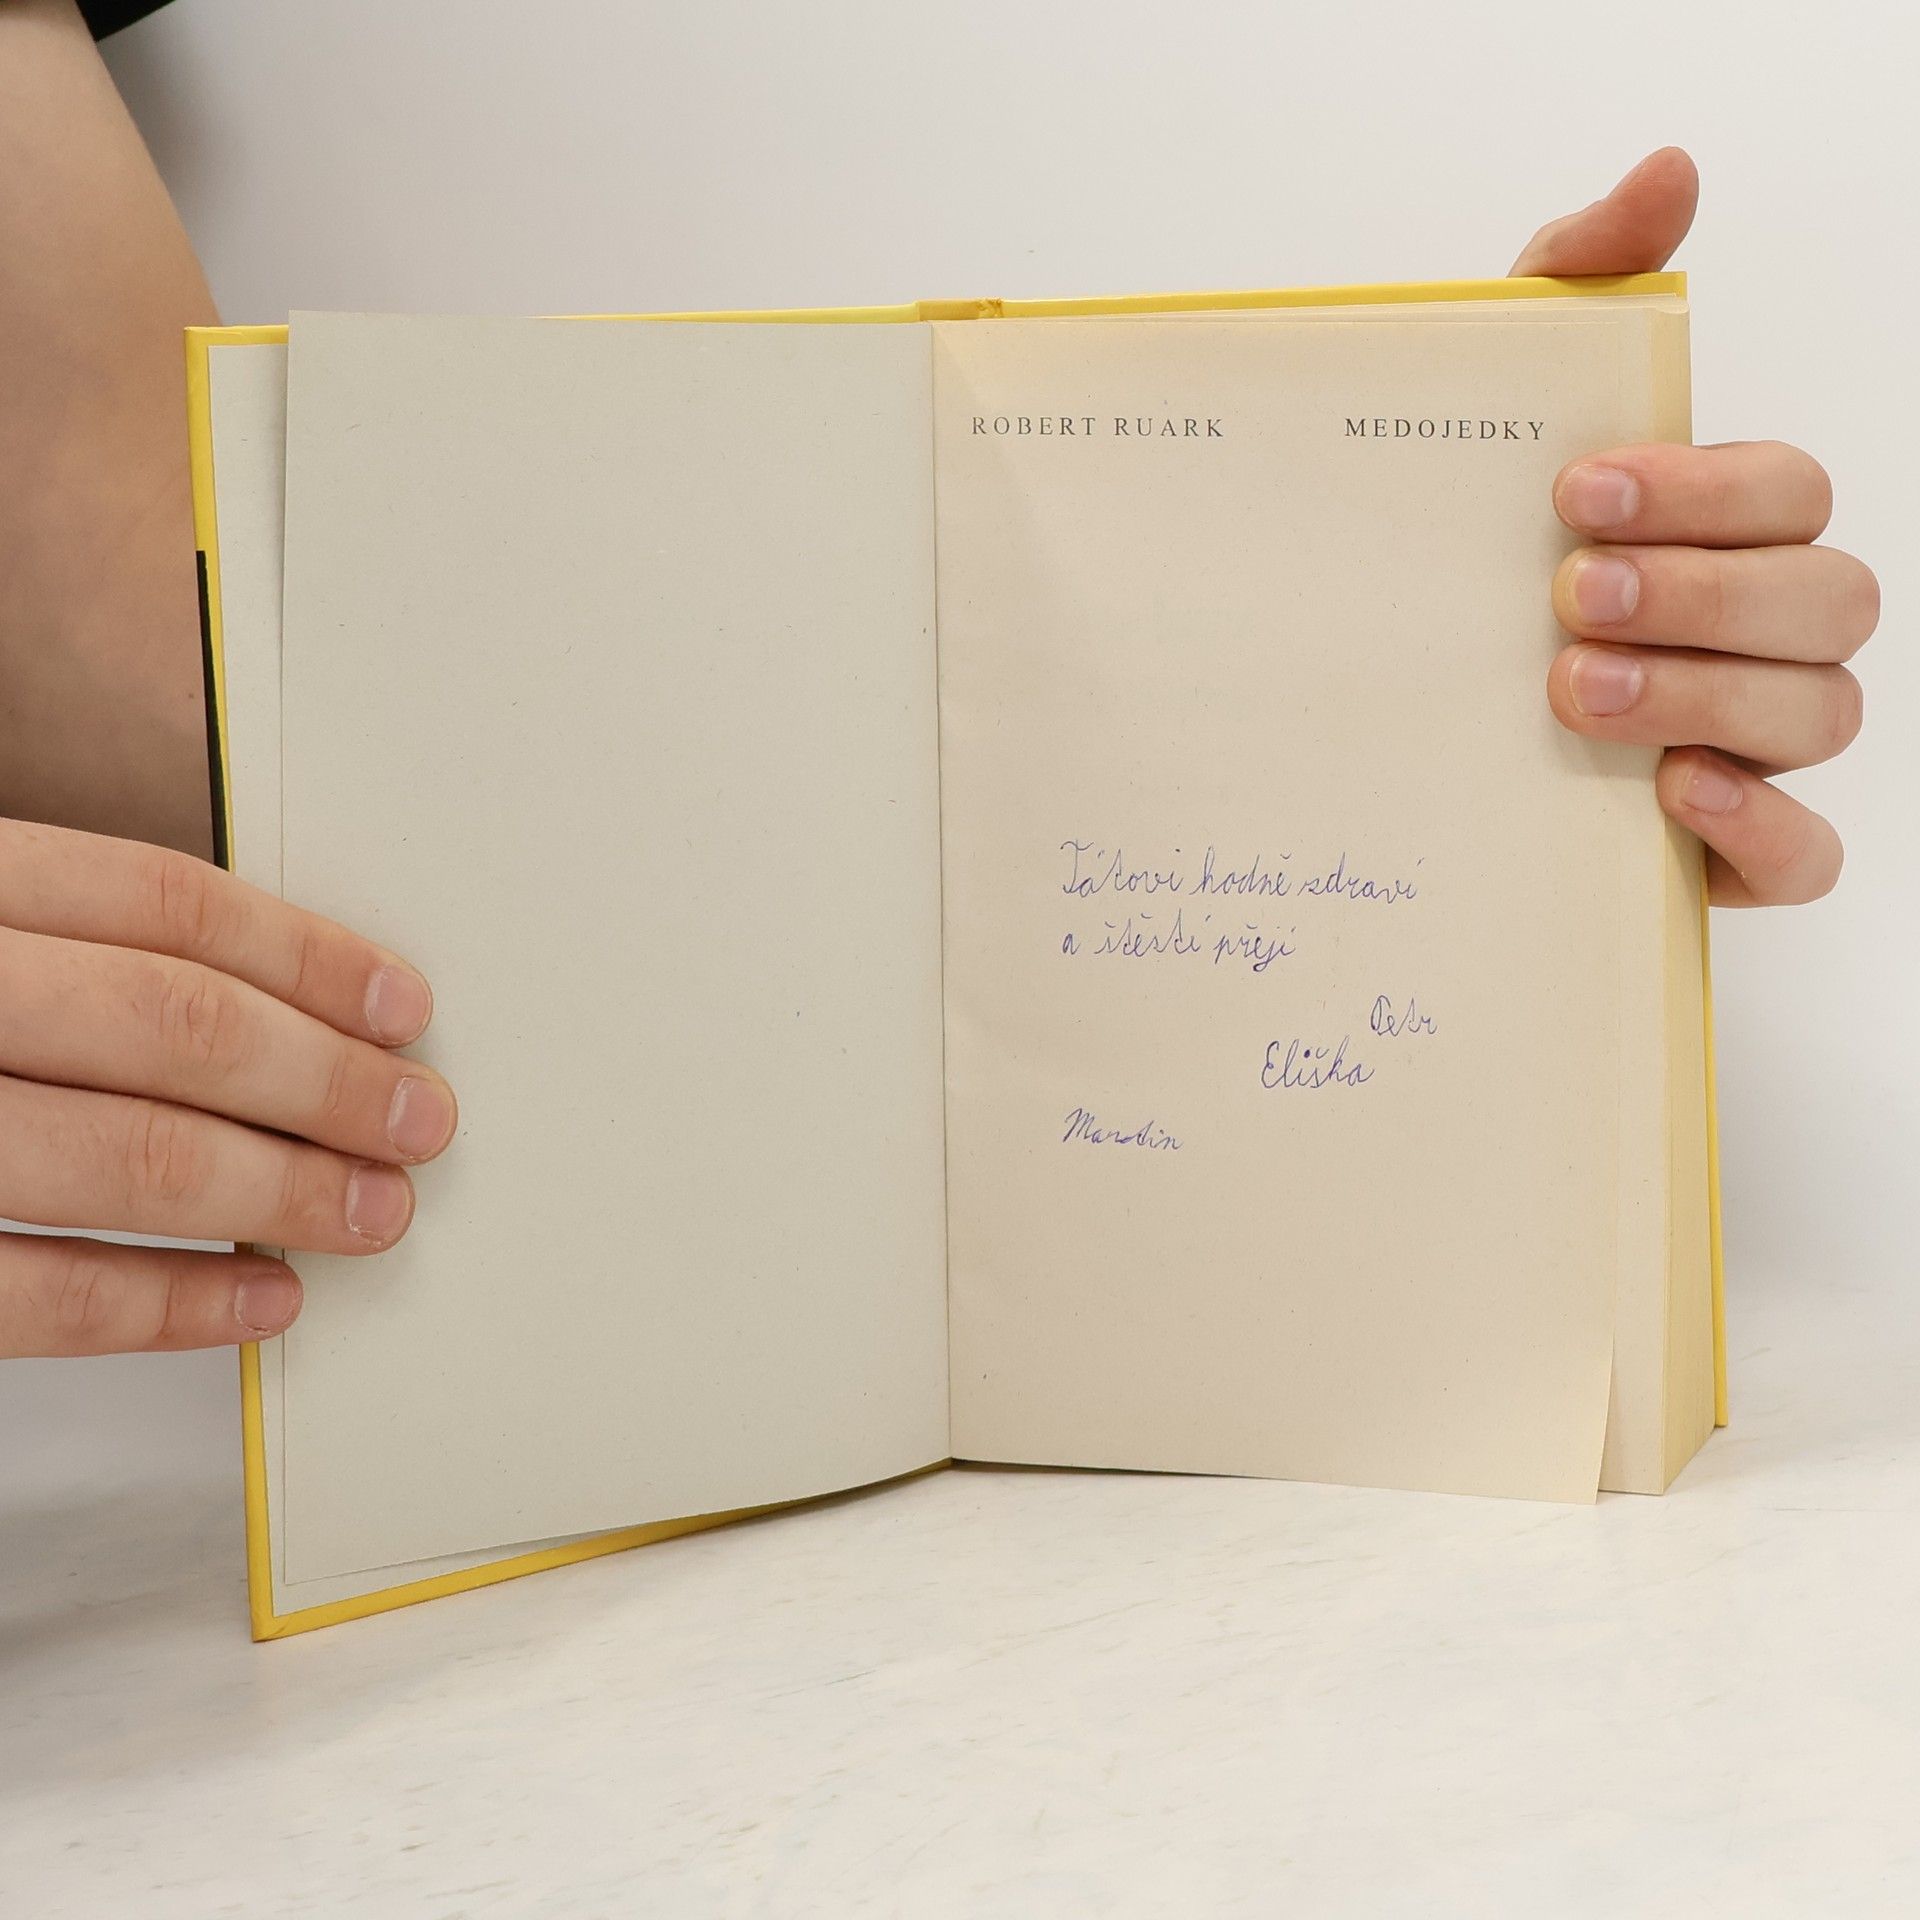 ROBERT RUARK MEDOJEDKY
Tátovi hodně zdraví
a štěstí přejí
Petr
Eliška
Martin